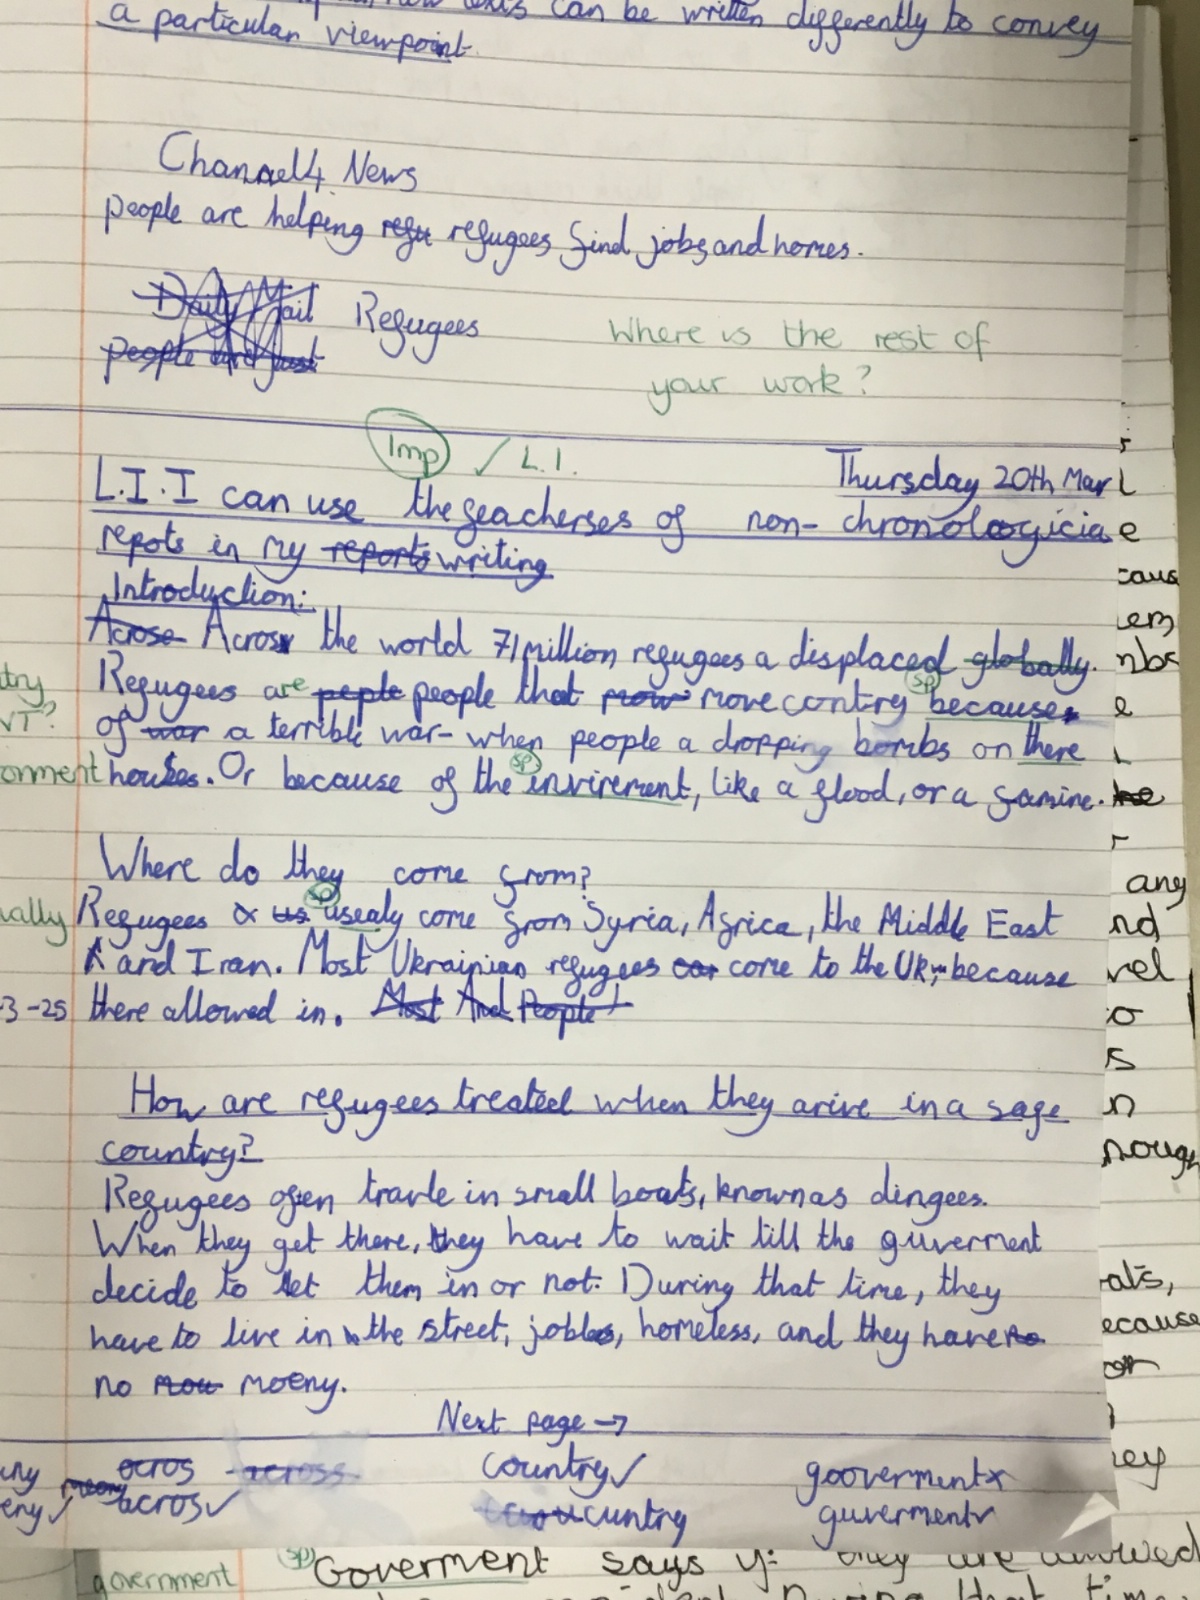 can be written differently to convey
a particular viewpoint.
Channel 4 News
people are helping refu refugees find jobs and homes.
Daily Mail Refugees
people are just
Where is the rest of
your work?
Imp ✓ L.I.
Thursday 20th Mar
L.I.I can use the feacherses of non-chronoloogicia
repots in my reports writing
Introduction:
Acrose Across the world 71 million refugees a displaced globally.
Refugees are peple people that mow move contry because
sp
of war a terrible war- when people a dropping bombs on there
houses. Or because of the invirement, like a flood, or a famine.
sp
onment
Where do they come from?
sp
ually
Refugees us usealy come from Syria, Africa, the Middle East
and Iran. Most Ukrainian refugees come to the UK, because
3-25
there allowed in. Most And People
How are refugees treated when they arive in a safe
country?
Refugees often travle in small boats, known as dingees.
When they get there, they have to wait till the guverment
decide to let them in or not. During that time, they
have to live in the street, jobles, homeless, and they have no
no mou moeny.
Next page →
acros across country✓ gooverment×
eny✓ acros✓ cuntry guverment✓
any
nd
vel
o
s
n
nough
ats,
ecause
ey
sp
government
Goverment says if they are allowed
During that time,